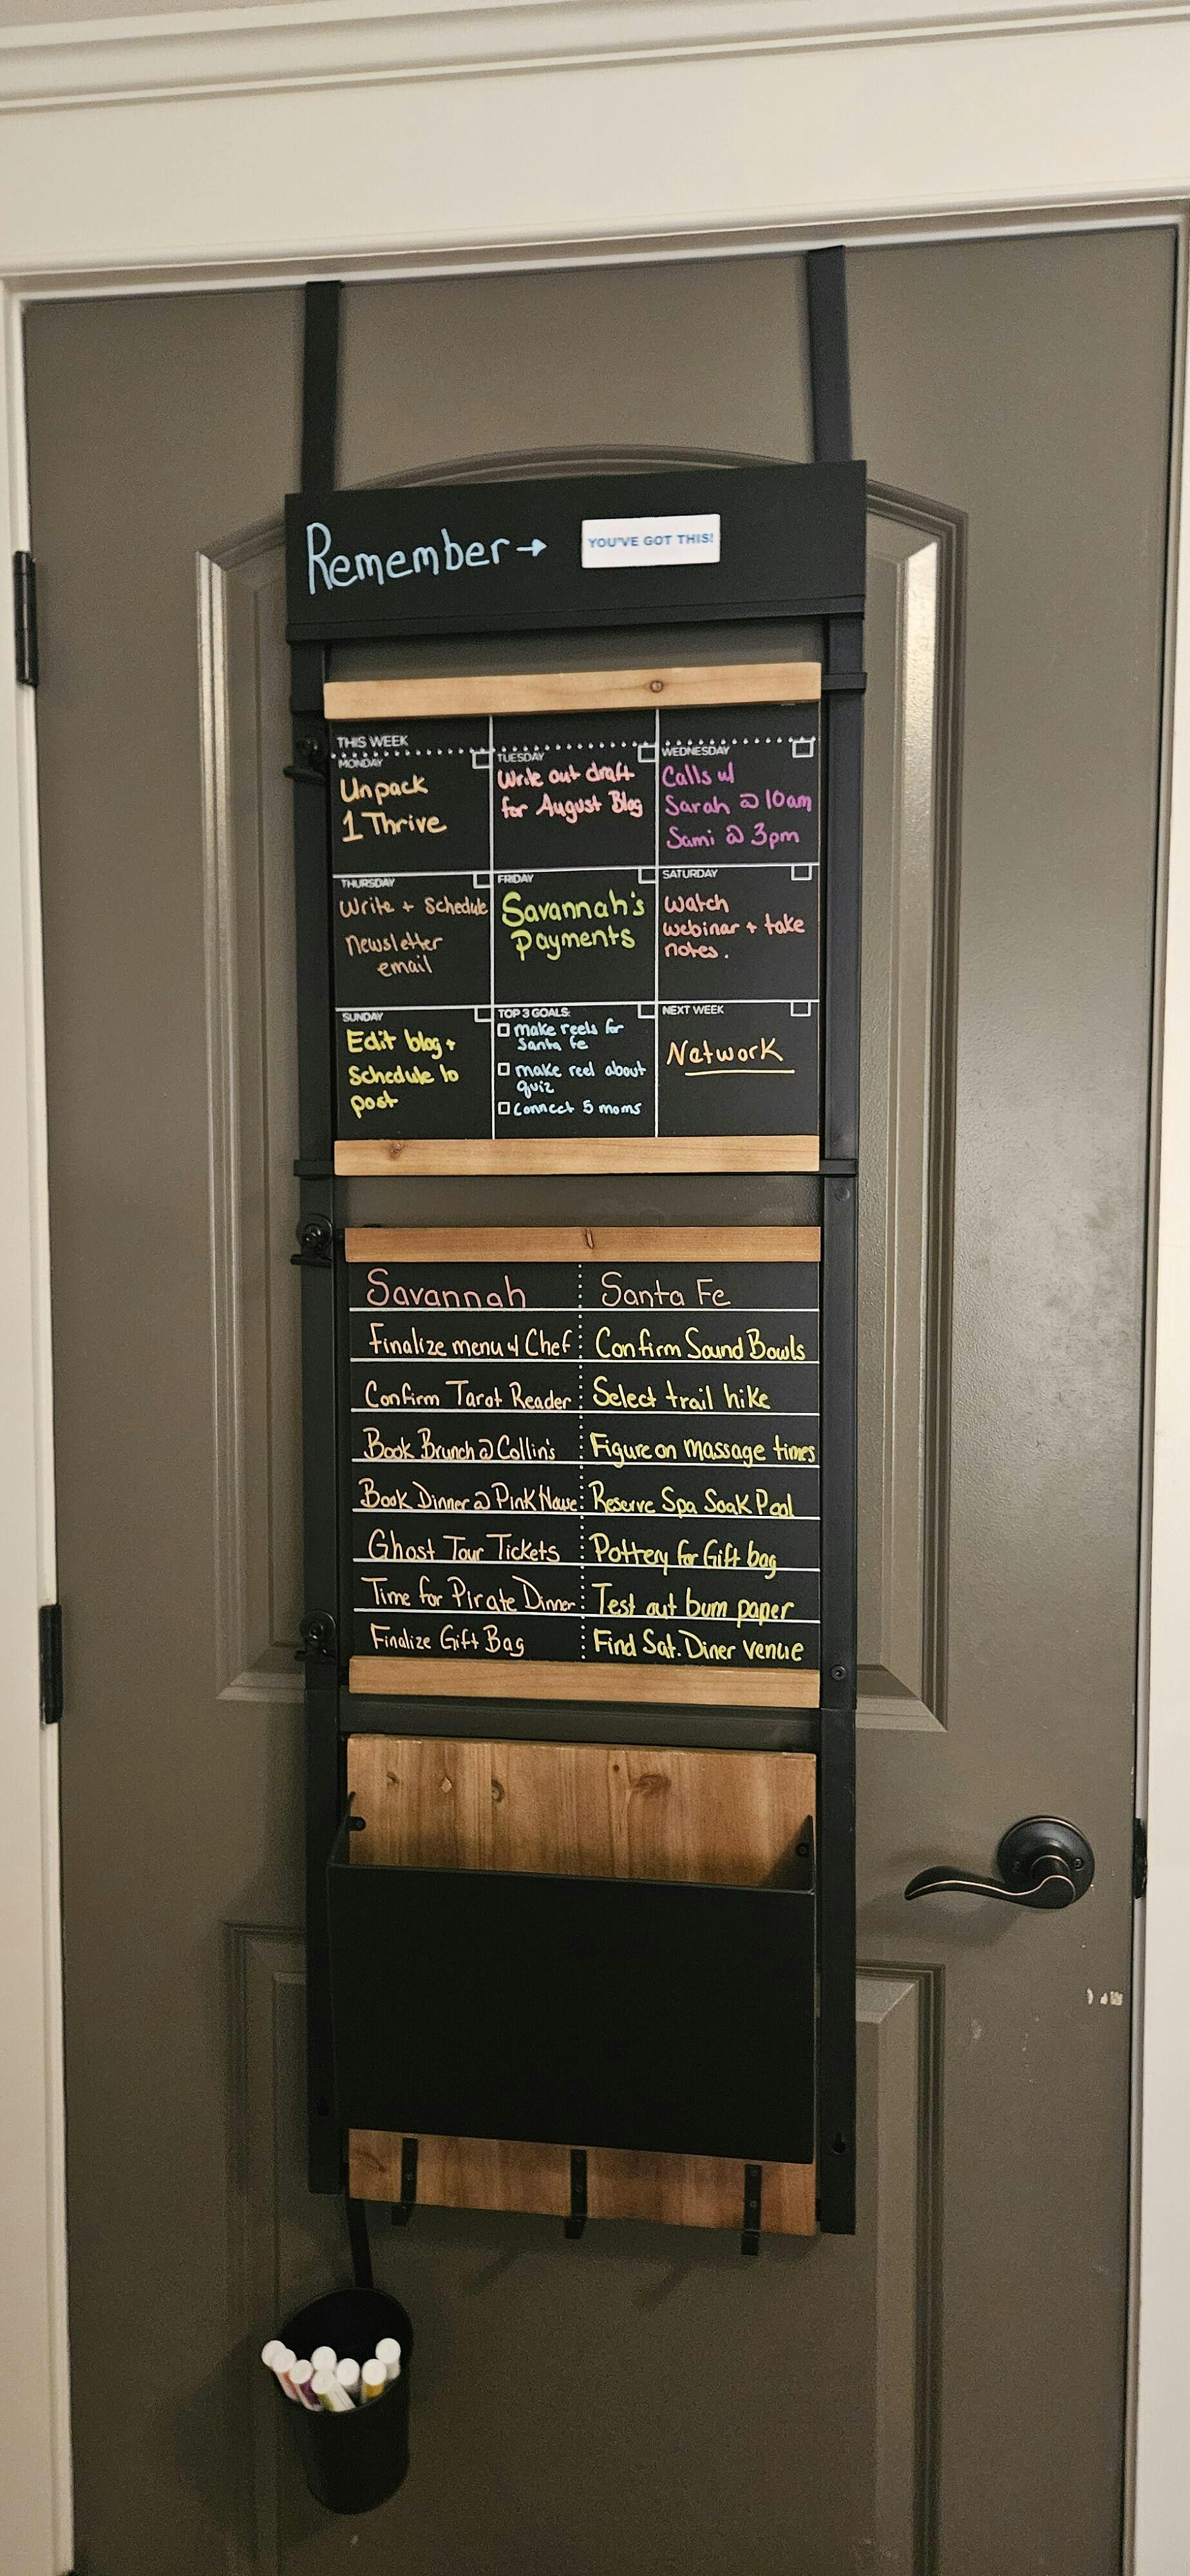 Remember →
YOU'VE GOT THIS!
THIS WEEK
MONDAY
Unpack
1 Thrive
TUESDAY
Write out draft
for August Blog
WEDNESDAY
Calls w/
Sarah @ 10am
Sami @ 3pm
THURSDAY
Write + Schedule
newsletter
email
FRIDAY
Savannah's
Payments
SATURDAY
Watch
webinar + take
notes.
SUNDAY
Edit blog +
Schedule to
post
TOP 3 GOALS:
make reels for
Santa Fe
make reel about
quiz
Connect 5 moms
NEXT WEEK
Network
Savannah
Finalize menu w/ Chef
Confirm Tarot Reader
Book Brunch @ Collin's
Book Dinner @ Pink House
Ghost Tour Tickets
Time for Pirate Dinner
Finalize Gift Bag
Santa Fe
Confirm Sound Bowls
Select trail hike
Figure on massage times
Reserve Spa Soak Pool
Pottery for Gift bag
Test out burn paper
Find Sat. Diner venue